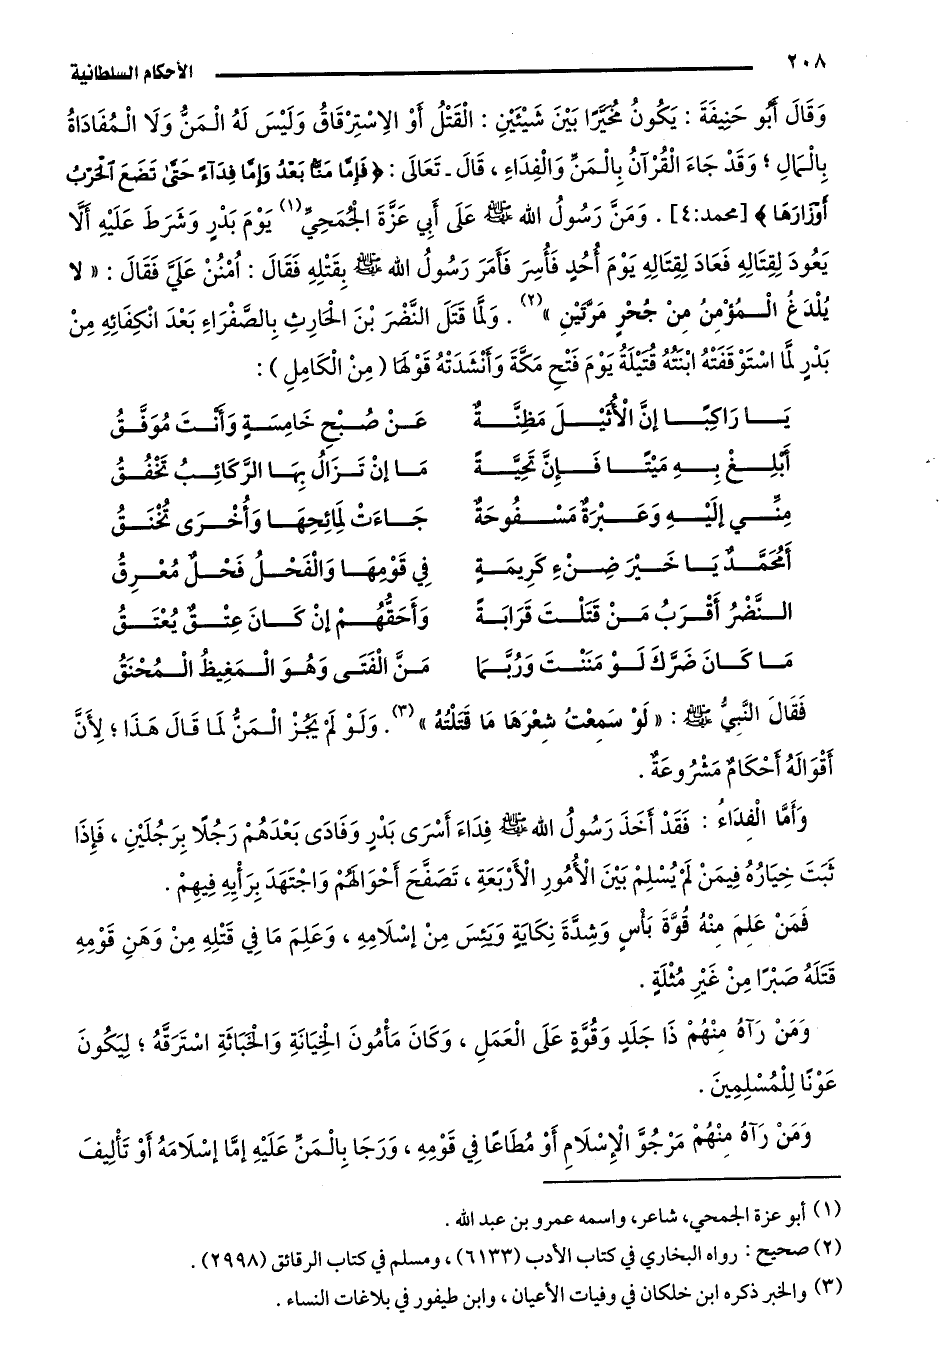 ٢٠٨ الأحكام السلطانية
وَقَالَ أَبُو حَنِيفَةَ : يَكُونُ مُخَيَّرًا بَيْنَ شَيْئَيْنِ : الْقَتْلُ أَوْ الِاسْتِرْقَاقُ وَلَيْسَ لَهُ الْمَنُّ وَلَا الْمُفَادَاةُ
بِالْمَالِ ؛ وَقَدْ جَاءَ الْقُرْآنُ بِالْمَنِّ وَالْفِدَاءِ ، قَالَ ـ تَعَالَى : ﴿ فَإِمَّا مَنًّا بَعْدُ وَإِمَّا فِدَآءً حَتَّىٰ تَضَعَ ٱلْحَرْبُ
أَوْزَارَهَا ﴾ [محمد:٤] . وَمَنَّ رَسُولُ الله ﷺ عَلَى أَبِي عَزَّةَ الْجُمَحِيِّ(١) يَوْمَ بَدْرٍ وَشَرَطَ عَلَيْهِ أَلَّا
يَعُودَ لِقِتَالِهِ فَعَادَ لِقِتَالِهِ يَوْمَ أُحُدٍ فَأُسِرَ فَأَمَرَ رَسُولُ الله ﷺ بِقَتْلِهِ فَقَالَ : اُمْنُنْ عَلَيَّ فَقَالَ : « لا
يُلْدَغُ الْـمُؤْمِنُ مِنْ جُحْرٍ مَرَّتَيْنِ »(٢) . وَلَمَّا قَتَلَ النَّضْرَ بْنَ الْحَارِثِ بِالصَّفْرَاءِ بَعْدَ انْكِفَائِهِ مِنْ
بَدْرٍ لَمَّا اسْتَوْقَفَتْهُ ابْنَتُهُ قُتَيْلَةُ يَوْمَ فَتْحِ مَكَّةَ وَأَنْشَدَتْهُ قَوْلَهَا ( مِنْ الْكَامِلِ ) :
يَـا رَاكِبًـا إنَّ الْأُثَيْـلَ مَظِنَّـةٌ عَـنْ صُبْحِ خَامِسَةٍ وَأَنْتَ مُوَفَّقُ
أَبْلِـغْ بِـهِ مَيْتًـا فَـإِنَّ تَحِيَّـةً مَـا إنْ تَزَالُ بِهَا الرَّكَائِبُ تَخْفُقُ
مِنِّـي إلَيْـهِ وَعَـبْرَةٌ مَسْـفُوحَةٌ جَـاءَتْ لِمَائِحِهَـا وَأُخْـرَى تَخْنُقُ
أَمُحَمَّـدٌ يَـا خَـيْرَ ضِنْءِ كَرِيمَـةٍ فِي قَوْمِهَـا وَالْفَحْـلُ فَحْـلٌ مُعْـرِقُ
النَّضْرُ أَقْرَبُ مَـنْ قَتَلْتَ قَرَابَـةً وَأَحَقُّهُـمْ إنْ كَـانَ عِتْـقٌ يُعْتَـقُ
مَـا كَـانَ ضَرَّكَ لَـوْ مَنَنْـتَ وَرُبَّـمَا مَـنَّ الْفَتَـى وَهُـوَ الْـمَغِيظُ الْـمُحْنَقُ
فَقَالَ النَّبِيُّ ﷺ : « لَوْ سَمِعْتُ شِعْرَهَا مَا قَتَلْتُهُ »(٣). وَلَوْ لَمْ يَجُزْ الْـمَنُّ لَمَا قَالَ هَذَا ؛ لِأَنَّ
أَقْوَالَهُ أَحْكَامٌ مَشْرُوعَةٌ .
وَأَمَّا الْفِدَاءُ : فَقَدْ أَخَذَ رَسُولُ الله ﷺ فِدَاءَ أَسْرَى بَدْرٍ وَفَادَى بَعْدَهُمْ رَجُلًا بِرَجُلَيْنِ ، فَإِذَا
ثَبَتَ خِيَارُهُ فِيمَنْ لَمْ يُسْلِمْ بَيْنَ الْأُمُورِ الْأَرْبَعَةِ ، تَصَفَّحَ أَحْوَالَهُمْ وَاجْتَهَدَ بِرَأْيِهِ فِيهِمْ .
فَمَنْ عَلِمَ مِنْهُ قُوَّةَ بَأْسٍ وَشِدَّةَ نِكَايَةٍ وَيَئِسَ مِنْ إسْلَامِهِ ، وَعَلِمَ مَا فِي قَتْلِهِ مِنْ وَهَنِ قَوْمِهِ
قَتَلَهُ صَبْرًا مِنْ غَيْرِ مُثْلَةٍ .
وَمَنْ رَآهُ مِنْهُمْ ذَا جَلَدٍ وَقُوَّةٍ عَلَى الْعَمَلِ ، وَكَانَ مَأْمُونَ الْخِيَانَةِ وَالْخَبَاثَةِ اسْتَرَقَّهُ ؛ لِيَكُونَ
عَوْنًا لِلْمُسْلِمِينَ .
وَمَنْ رَآهُ مِنْهُمْ مَرْجُوَّ الْإِسْلَامِ أَوْ مُطَاعًا فِي قَوْمِهِ ، وَرَجَا بِالْـمَنِّ عَلَيْهِ إمَّا إسْلَامَهُ أَوْ تَأْلِيفَ
(١) أبو عزة الجمحي، شاعر، واسمه عمرو بن عبد الله .
(٢) صحيح : رواه البخاري في كتاب الأدب (٦١٣٣) ، ومسلم في كتاب الرقائق (٢٩٩٨) .
(٣) والخبر ذكره ابن خلكان في وفيات الأعيان ، وابن طيفور في بلاغات النساء .